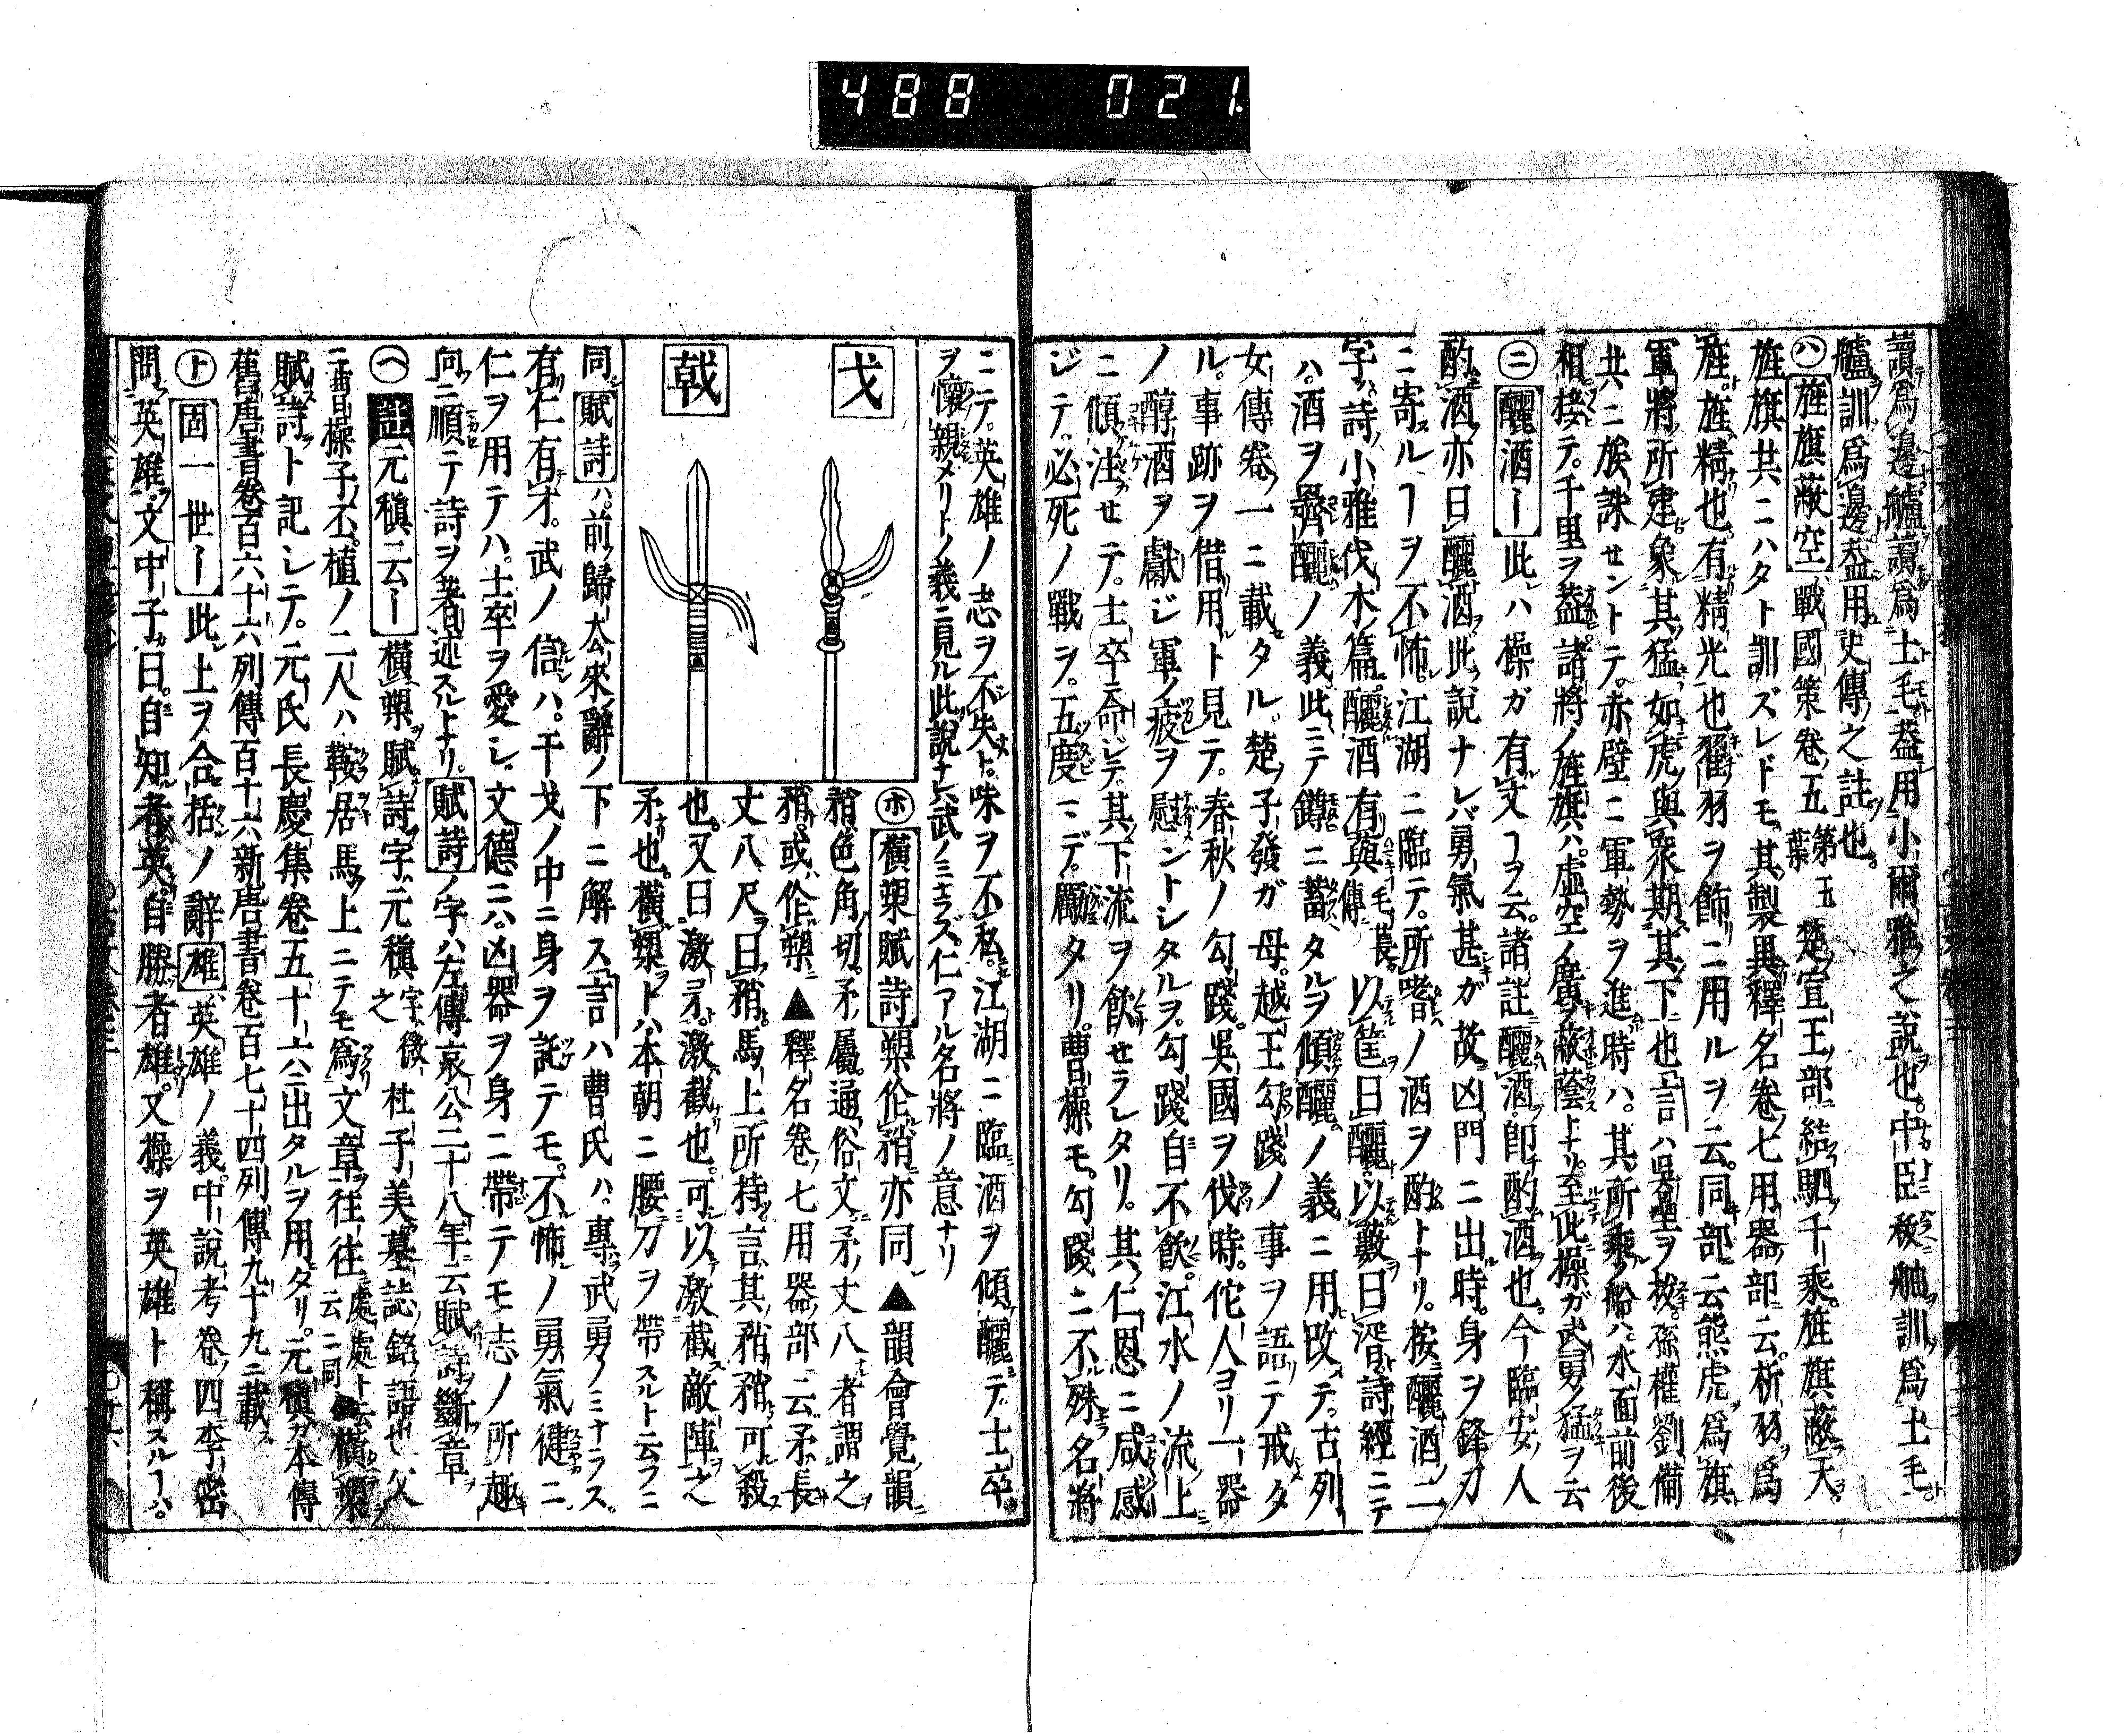 488 021.
讀爲邊艫讀爲土毛葢用小爾雅之說也中臣柀舳訓爲土毛
艫訓爲邊葢用史傳之註也
ハ 旌旗蔽空 戰國策卷五第五葉楚宣王部結駟千乘旌旗蔽天
旌旗共ニハタト訓ズレドモ其製異釋名卷七用器部云析羽爲
旌旌精也有精光也翟羽ヲ飾ニ用ルヲ云同部云熊虎爲旗
軍將所建象其猛如虎與衆期其下也言ハ吳望ヲ扱孫權劉備
共ニ族誅セントテ赤壁ニ軍勢ヲ進時ハ其所乘ノ船ハ水面前後
相接テ千里ヲ葢諸將ノ旌旗ハ虛空ノ廣ヲ蔽蔭トナリ至此操ガ武勇ノ猛ヲ云
ニ 釃酒ー 此ハ操ガ有文ヿヲ云諸註釃酒卽酌酒也今臨安人
酌酒亦曰釃酒此說ナレバ勇氣甚ガ故凶門ニ出時身ヲ鋒刃
ニ寄ルヿヲ不怖江湖ニ臨テ所嗜ノ酒ヲ酌トナリ按釃酒ノ二
字ハ詩小雅伐木篇釃酒有藇毛萇傳以筐曰釃以藪曰湑詩經ニテ
ハ酒ヲ釃ノ義此ニテ罇ニ蓄タルヲ傾釃ノ義ニ用改テ古列
女傳卷一ニ載タル楚ノ子發ガ母越王勾踐ノ事ヲ語テ戒タ
ル事跡ヲ借用ト見テ春秋ノ勾踐吳國ヲ伐時佗人ヨリ一器
ノ醇酒ヲ獻ジ軍ノ疲ヲ慰ントシタルヲ勾踐自不飮江水ノ流上
ニ傾注セテ士卒ニ命ジテ其下流ヲ飮セラレタリ其仁恩ニ咸感
ジテ必死ノ戰ヲ五度マデ勵タリ曹操モ勾踐ニ不殊名將
ニテ英雄ノ志ヲ不失ト味ヲ不私江湖ニ臨酒ヲ傾釃デ士卒
ヲ懷親メリトノ義ニ見ル此說ナレバ武ノミナラズ仁アル名將ノ意ナリ
戈
戟
ホ 橫槊賦詩 槊佗矟亦同▲韻會覺韻
矟色角切矛屬通俗文矛丈八者謂之
矟或作槊▲釋名卷七用器部云矛長
丈八尺曰矟馬上所持言其矟矟可殺
也又曰激矛激截也可以激截敵陣之
矛也橫槊トハ本朝ニ腰刀ヲ帶スルト云フニ
同 賦詩 ハ前歸去來辭ノ下ニ解ス言ハ曹氏ハ專武勇ノミナラス
有仁有才武ノ信ハ干戈ノ中ニ身ヲ託テモ不怖ノ勇氣健ニ
仁ヲ用テハ士卒ヲ愛シ文德ニハ凶器ヲ身ニ帶テモ志ノ所趣
向ニ順テ詩ヲ著述スルトナリ 賦詩 ノ字ハ左傳哀公二十八年云賦詩斷章
ヘ 註 元稹云ー 橫槊賦詩字元稹字微之杜子美墓誌銘語也父
ニ曹操子丕植ノ二人ハ鞍居馬上ニテモ爲文章往往處處ト云ニ同橫槊
賦詩ト記シテ元氏長慶集卷五十六ニ出タルヲ用タリ元稹ガ本傳
舊唐書卷百六十六列傳百十六新唐書卷百七十四列傳九十九ニ載ス
ト 固一世ー 此上ヲ合括ノ辭 雄 英雄ノ義中說考卷四李密
問英雄文中子曰自知者英自勝者雄又操ヲ英雄ト稱スルヿハ